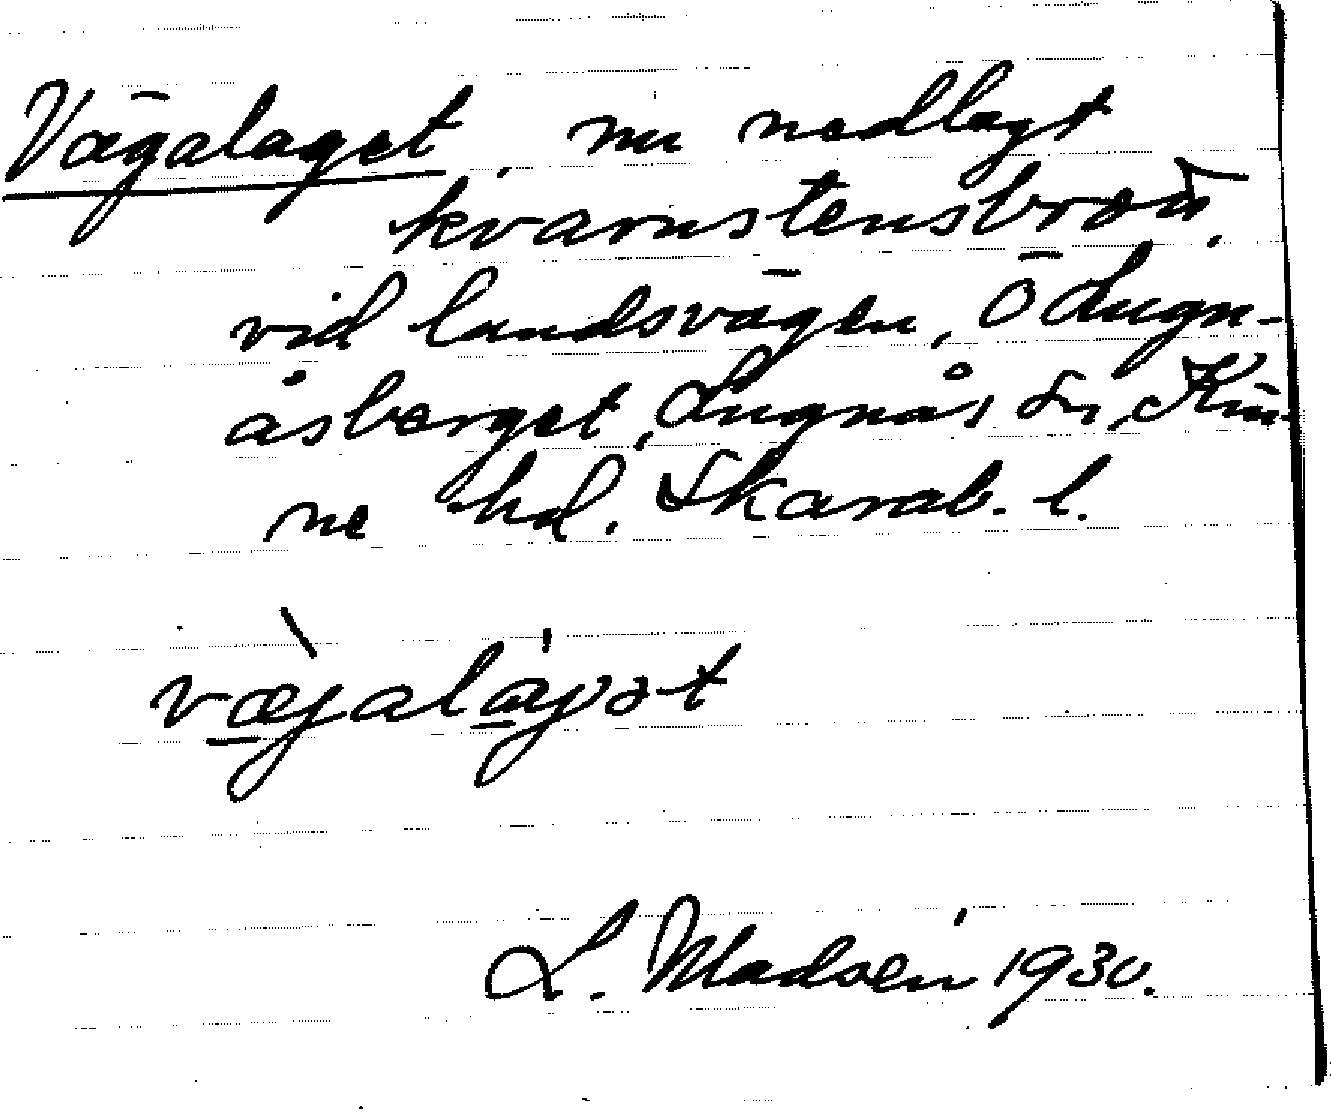 Vägalaget, nu nedlagt
kvarnstensbrott,
vid landsvägen, Ö Lugn-
åsberget, Lugnås sn, Kin-
ne hd. Skarab. l.
væ̀jalágət
L. Madsén 1930.